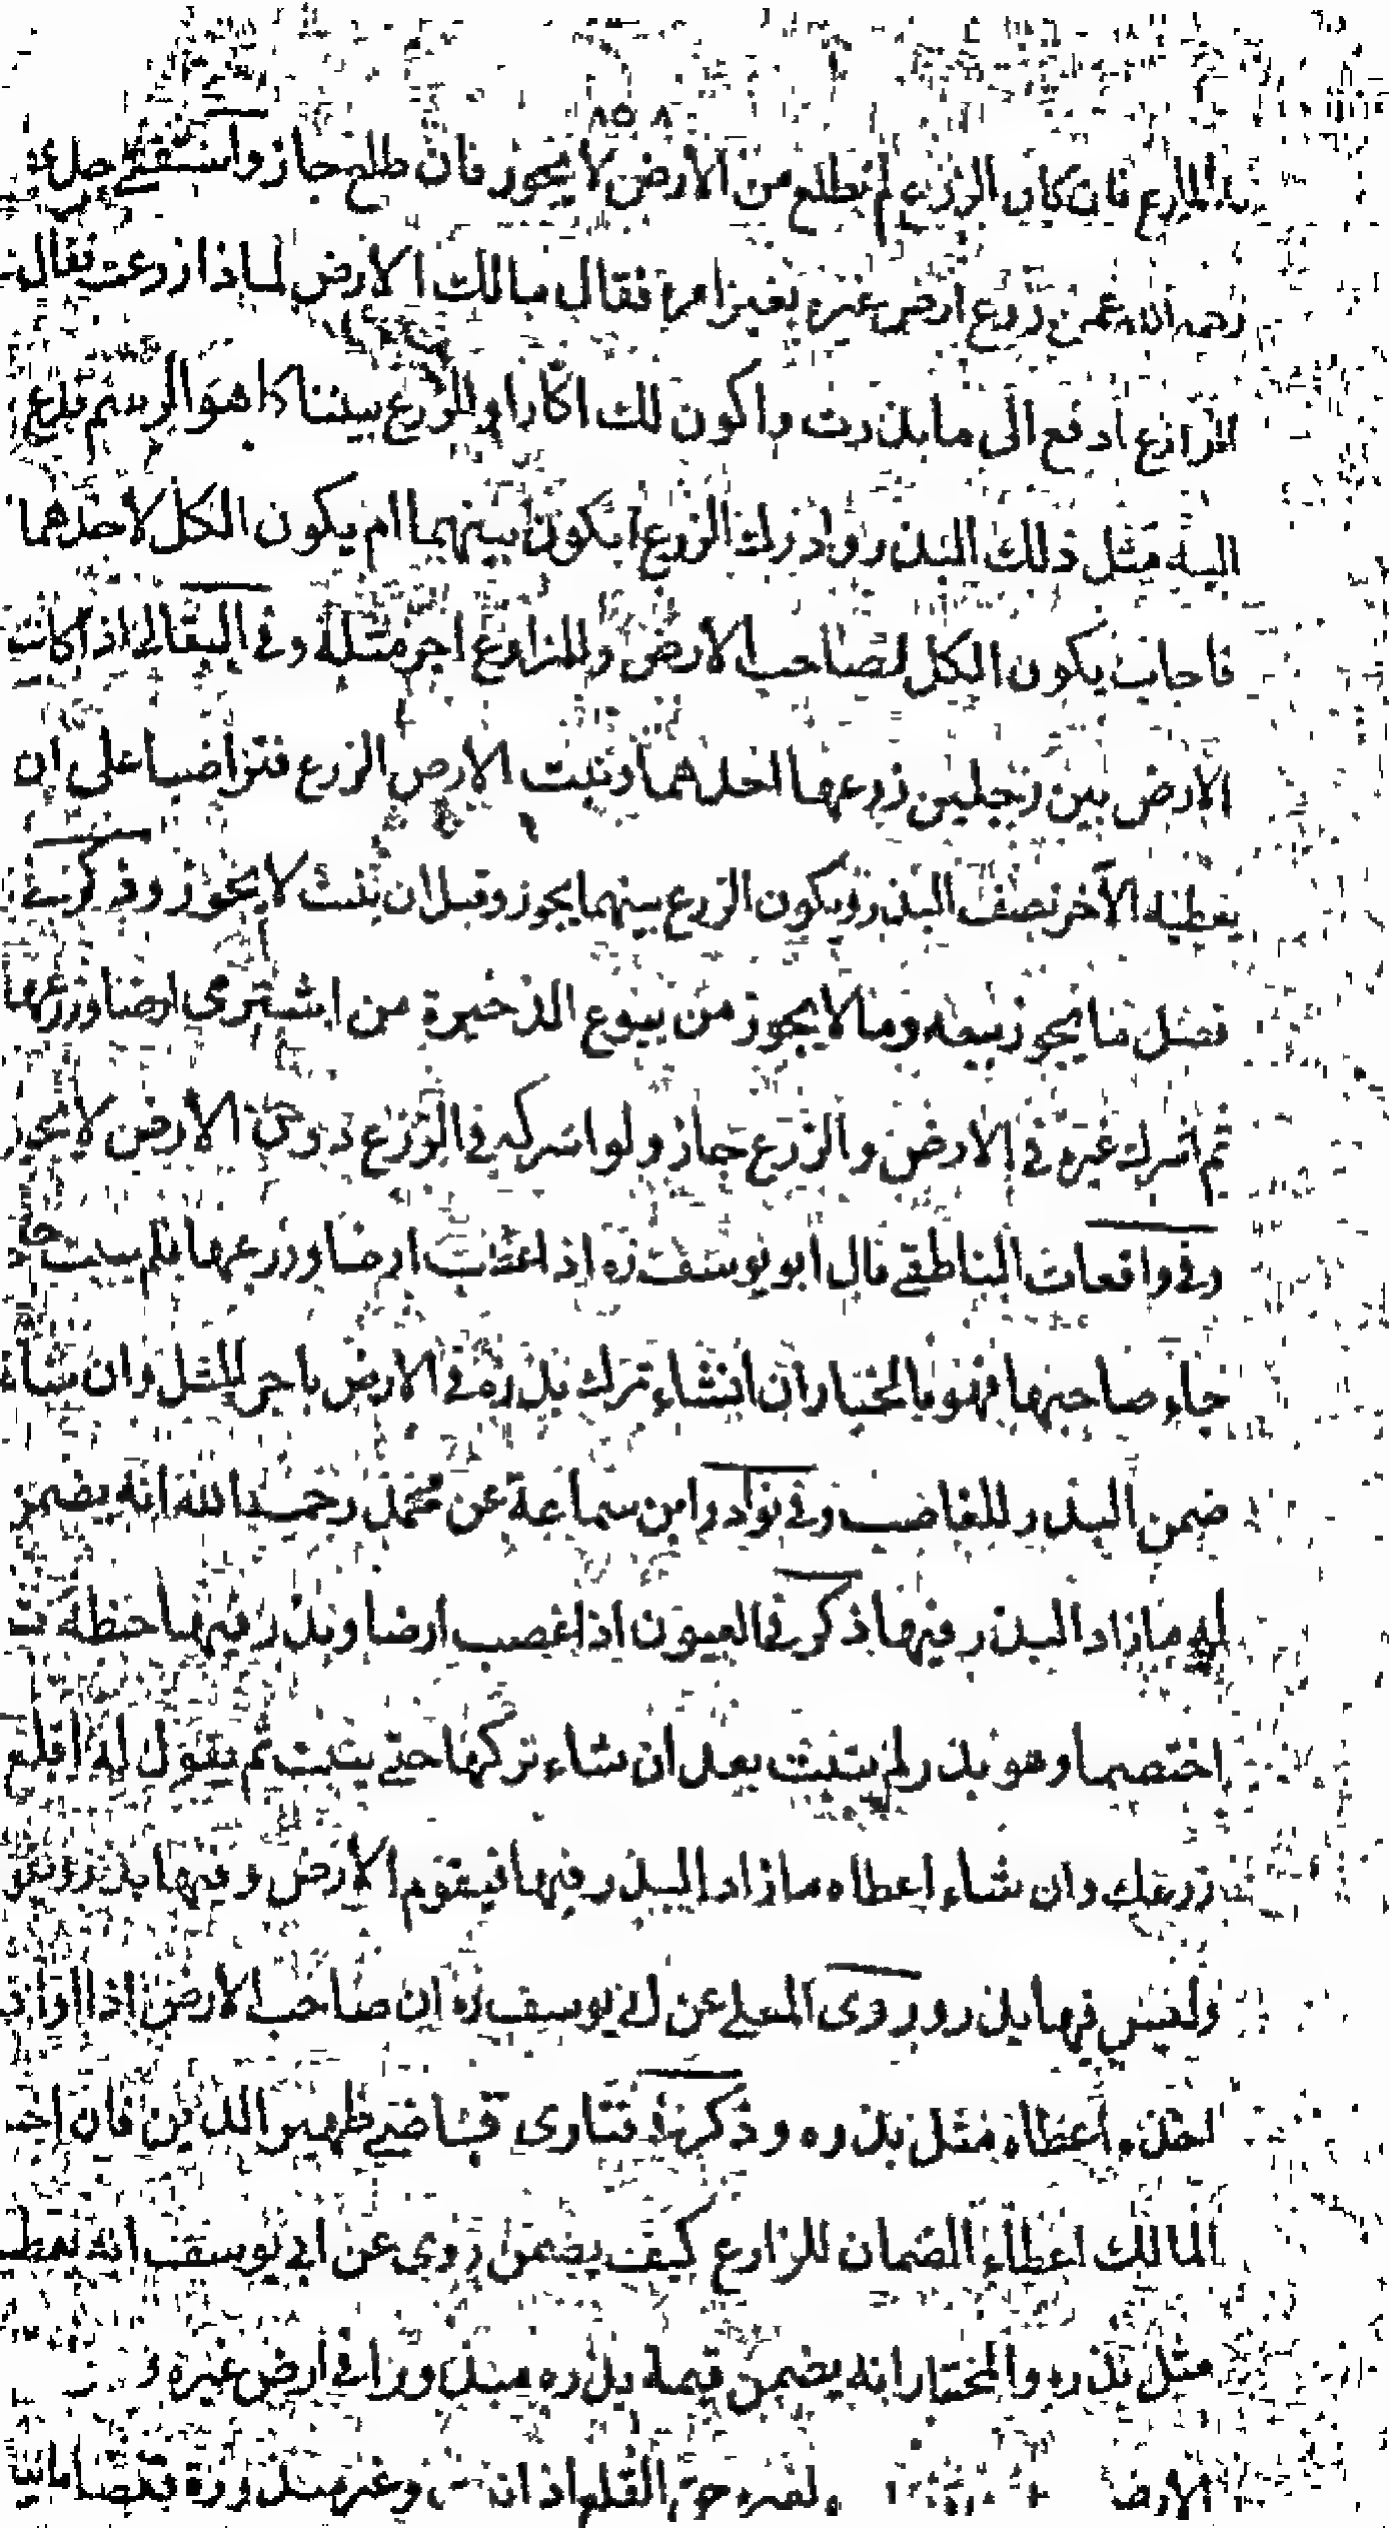 ٨٥٨
المزارع فان كان الزرع لم يطلع من الأرض لا يجوز فان طلع جاز واستفتى
رحمه الله عمن زرع ارض غيره بغير امره فقال مالك الارض لماذا زرعت فقال
الزارع ادفع الى ما بذرت واكون لك اكارا والزرع بيننا كما هو الرسم فدفع
اليه مثل ذلك البذر وادرك الزرع ايكون بينهما ام يكون الكل لاحدهما
فاجاب يكون الكل لصاحب الارض وللمزارع اجر مثله وفى البقالى اذا كانت
الأرض بين رجلين زرعها احدهما ونبت الارض الزرع فتراضيا على ان
يعطيه الآخر نصف البذر ويكون الزرع بينهما يجوز وقبل ان ينبت لا يجوز وذكر فى
فصل ما يجوز بيعه وما لا يجوز من بيوع الذخيرة من اشترى ارضا وزرعها
ثم اشرك غيره فى الارض والزرع جاز ولو اشركه فى الزرع دون الارض لا يجوز
وفى واقعات الناطفى قال ابو يوسف ره اذا غصب ارضا وزرعها فلم ينبت حتى
جاء صاحبها فهو بالخيار ان شاء ترك بذره فى الارض باجر المثل وان شاء
ضمن البذر للغاصب وفى نوادر ابن سماعة عن محمد رحمه الله انه يضمن
له ما زاد البذر فيها ذكر فى العيون اذا غصب ارضا وبذر فيها حنطة ثم
اختصما وهو بذر لم ينبت بعد ان شاء تركها حتى ينبت ثم يقول له اقلع
زرعك وان شاء اعطاه ما زاد البذر فيها فيقوم الارض وفيها بذر
وليس فيها بذر وروى المعلى عن ابى يوسف ره ان صاحب الارض اذا اراد
اخذه اعطاه مثل بذره وذكر فى فتاوى قاضى ظهير الدين فان
المالك اعطاء الضمان للزارع كيف يضمن روى عن ابى يوسف انه يعطيه
مثل بذره والمختار انه يضمن قيمة بذره مبذورا فى ارض غيره
الارض حق القلع اذ